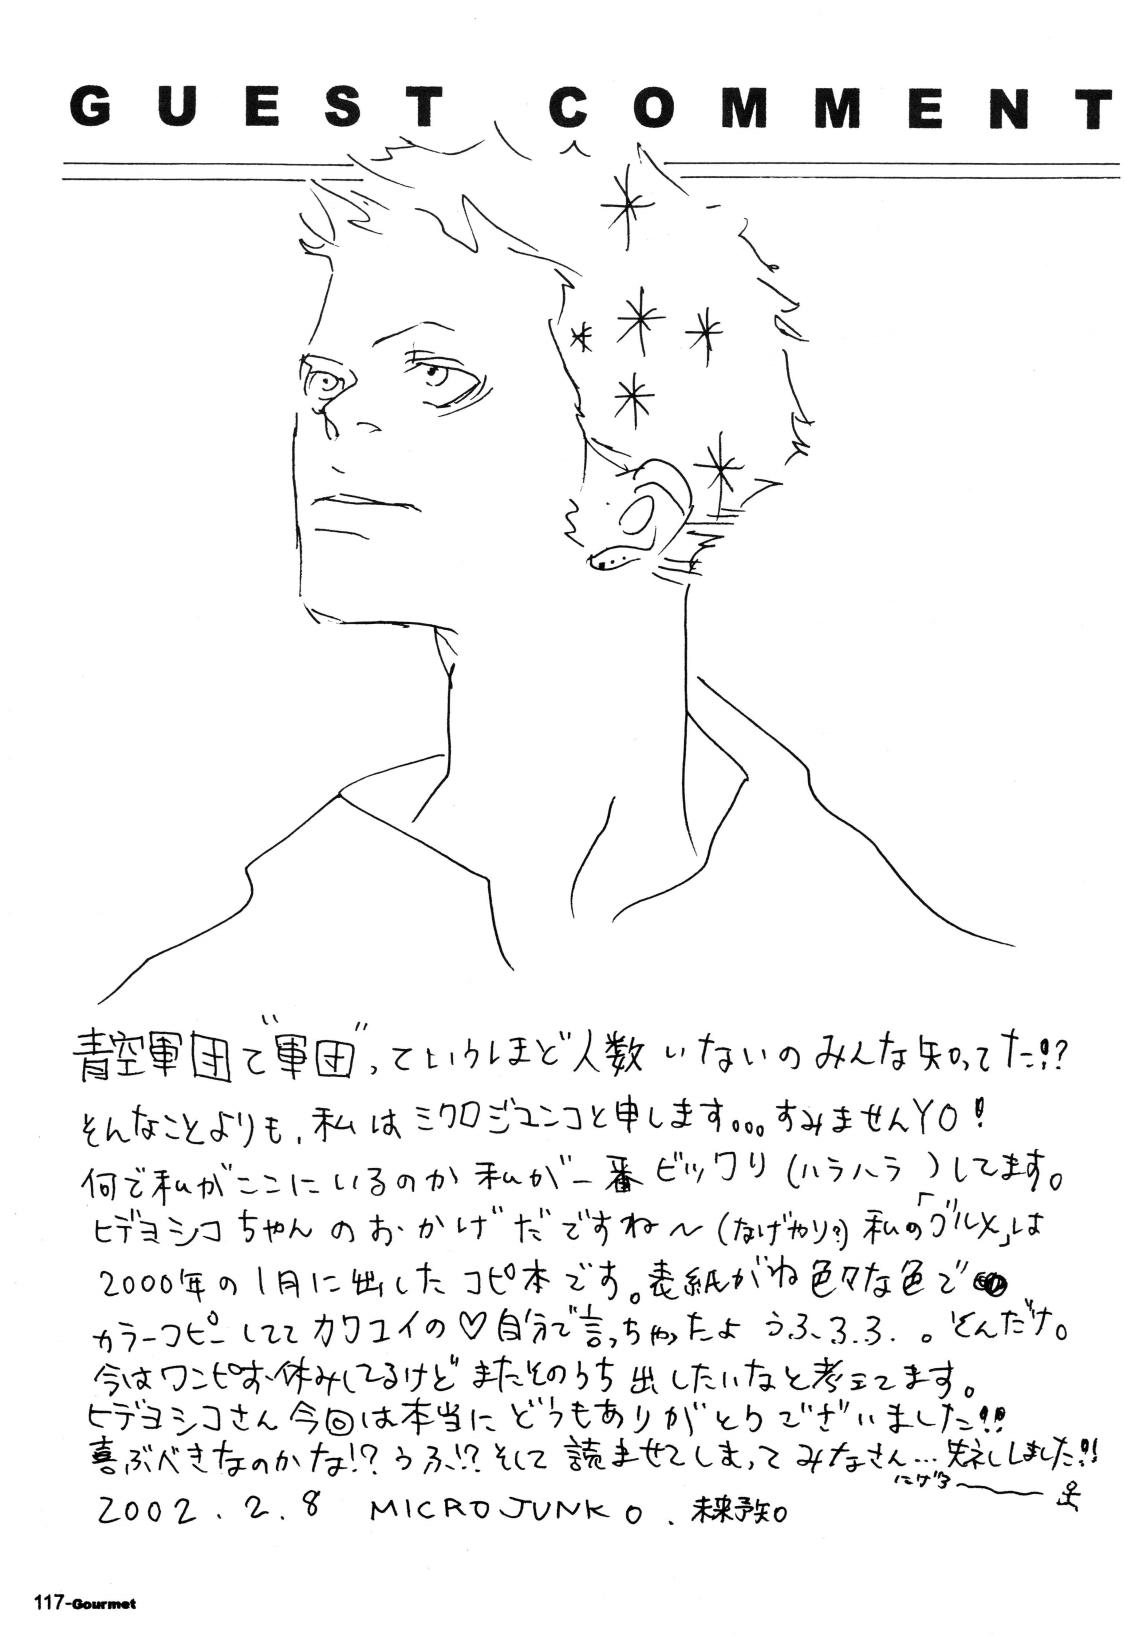 GUEST COMMENT
青空軍団で"軍団"っていうほど人数いないのみんな知ってた!?
そんなことよりも、私はミクロジュンコと申します。。。すみませんYO!
何で私がここにいるのか私が一番ビックリ(ハラハラ)してます。
ヒデヨシコちゃんのおかげだですね〜(なげやり?)私の「グルメ」は
2000年の1月に出したコピ本です。表紙がね色々な色で
カラーコピーしててカワユイの♡自分で言っちゃったようふふふ。そんだけ。
今はワンピお休みしてるけどまたそのうち出したいなと考えてます。
ヒデヨシコさん今回は本当にどうもありがとうございました!!
喜ぶべきなのかな!?うふ!?そして読ませてしまってみなさん…失礼しました!!
にげる
2002.2.8 MICROJUNKO.未来予知。
117-Gourmet